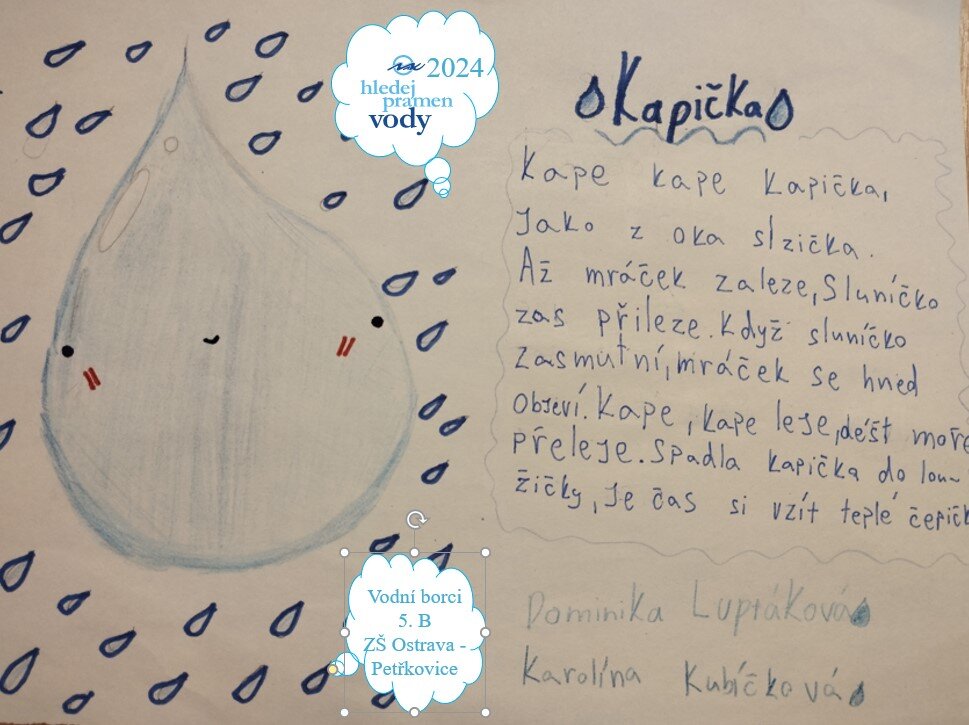 2024
hledej
pramen
vody
Kapička
Kape kape kapička,
Jako z oka slzička.
Až mráček zaleze, Sluníčko
zas přileze. Když sluníčko
zasmutní, mráček se hned
objeví. Kape, kape leje, déšť moře
přeleje. Spadla kapička do lou-
žičky, je čas si vzít teplé čepičk
Dominika Luptáková
Karolína Kubíčková
Vodní borci
5. B
ZŠ Ostrava -
Petřkovice